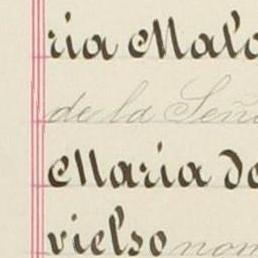 ria Malo
de la Seño
Maria de
vielso nom